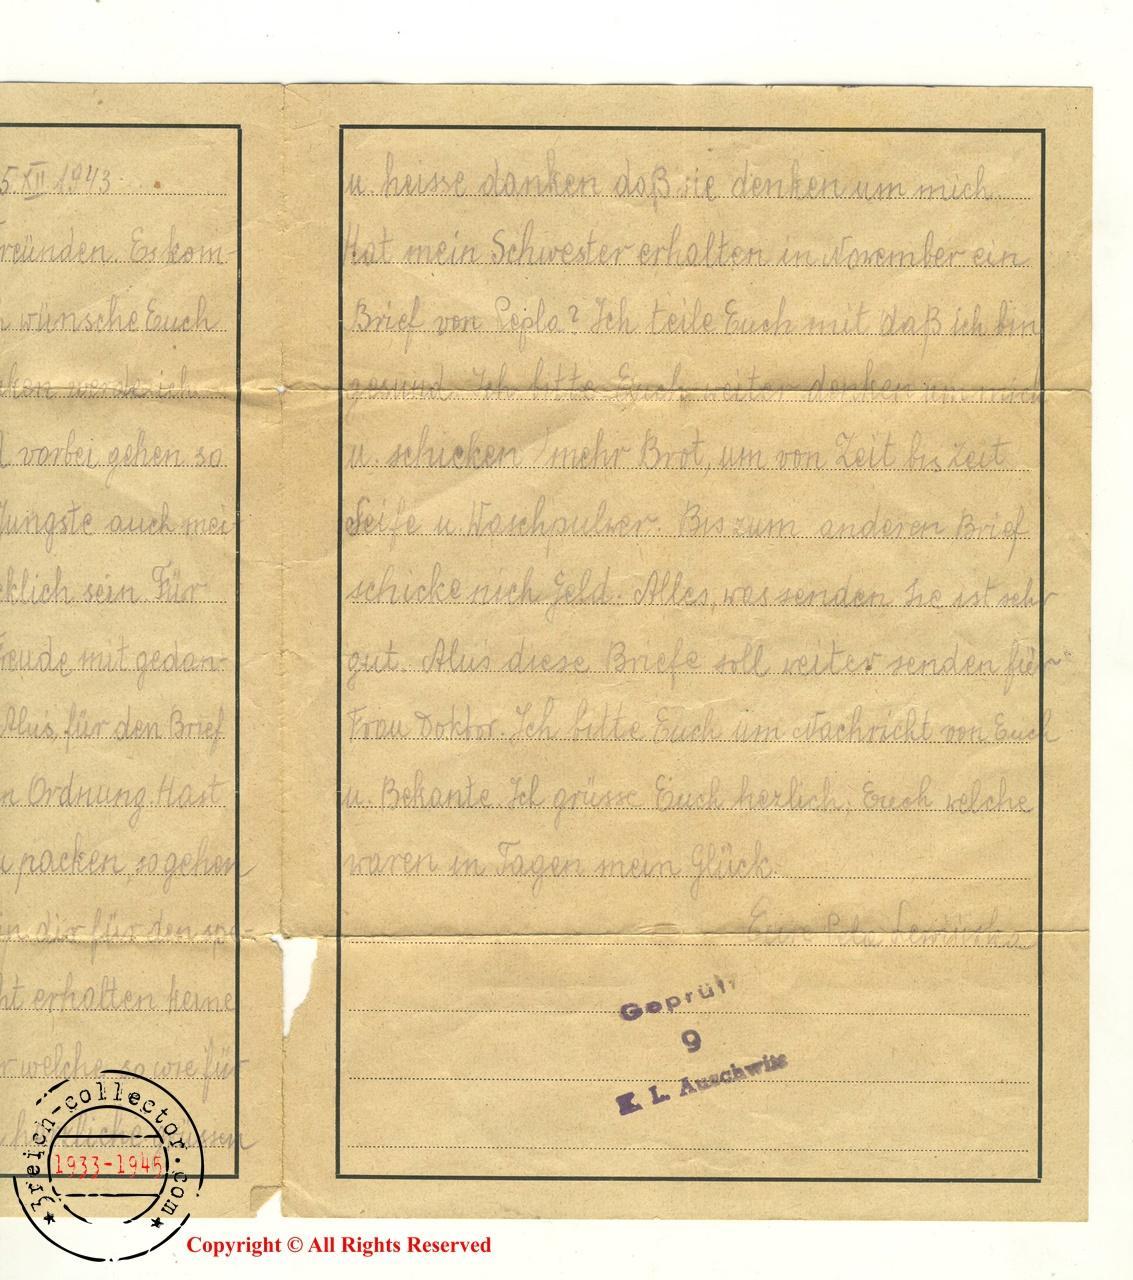 5 XII 1943
reünden. Es kom-
wünsche Euch
ken werde ich
vorbei gehen so
Jungste auch mei-
cklich sein. Für
reude mit gedan-
Alus für den Brief
n Ordnung. Hast
packen, so gehen
in dir für den spe-
ht erhalten keine
r welche so wie für
herzliche grüssen
u heisse danken daß sie denken um mich.
Hat mein Schwester erhalten in November ein
Brief von Pepla? Ich teile Euch mit daß ich bin
gesund. Ich bitte Euch weiter denken um mich
u. schicken mehr Brot, um von Zeit bis Zeit
Seife u. Waschpulwer. Bis zum anderen Brief
schicke nich Geld. Alles, was senden Sie ist sehr
gut. Alus diese Briefe soll weiter senden für
Frau Doktor. Ich bitte Euch um Nachricht von Euch
u. Bekante. Ich grüsse Euch herzlich, Euch welche
waren in Tagen mein Glück.
Eure Pela Lewińska
Geprüft
9
K. L. Auschwitz
3reich-collector.com
1933-1945
Copyright © All Rights Reserved